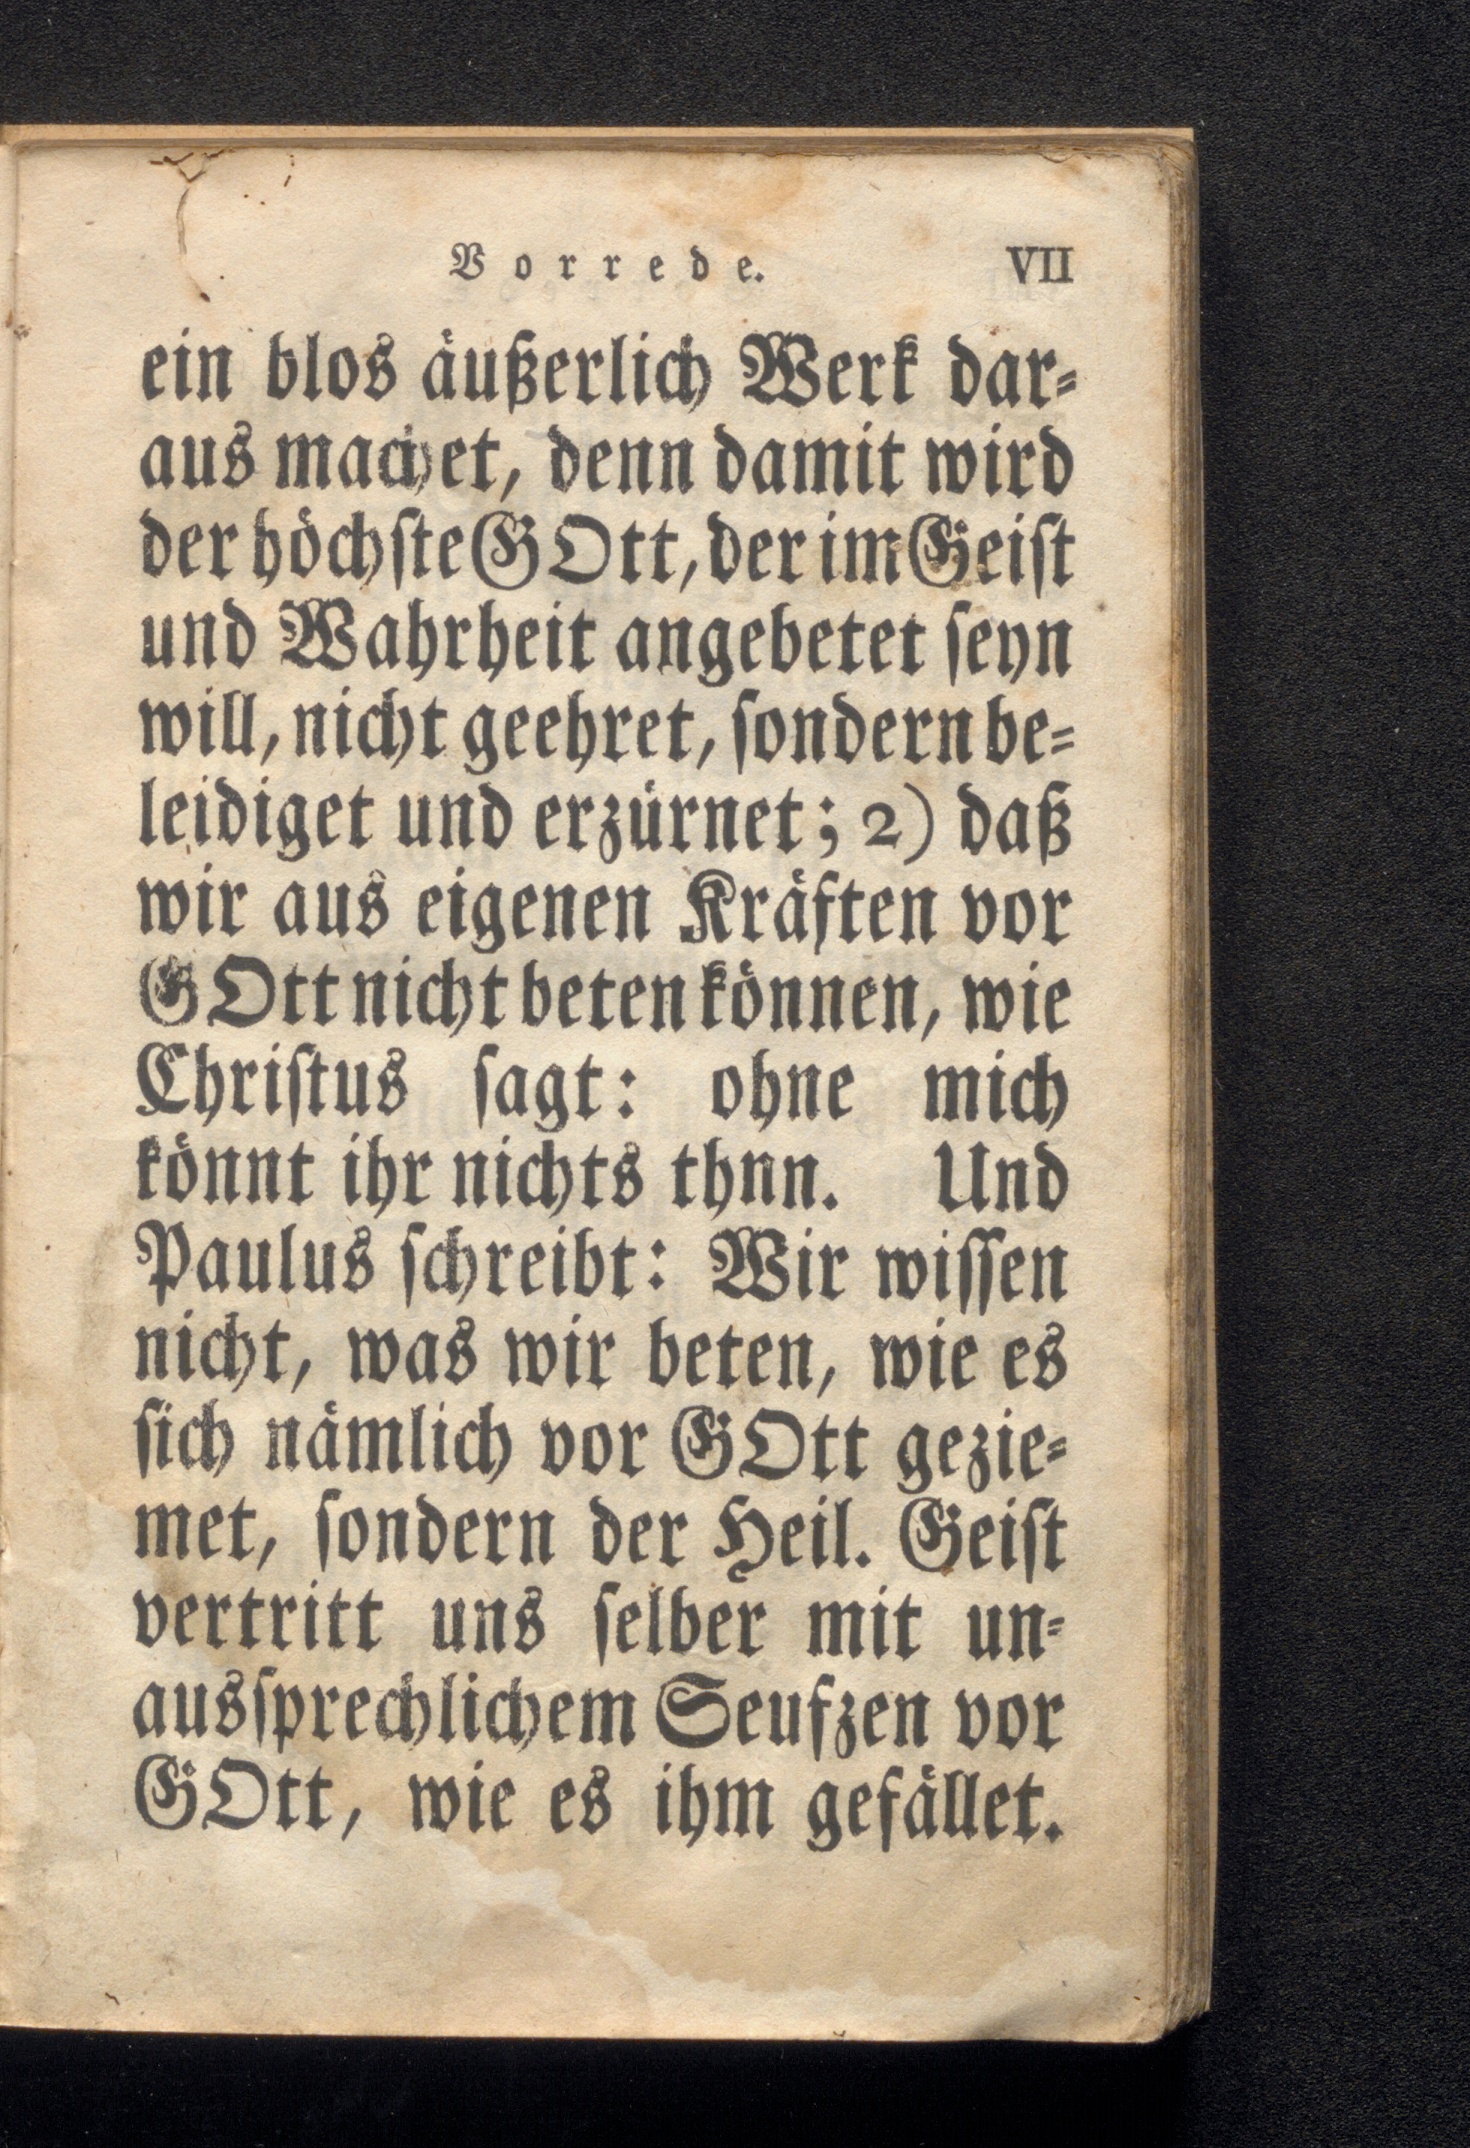 Vorrede. VII
ein blos äußerlich Werk dar-
aus machet, denn damit wird
der höchste GOtt, der im Geist
und Wahrheit angebetet seyn
will, nicht geehret, sondern be-
leidiget und erzürnet; 2) daß
wir aus eigenen Kräften vor
GOtt nicht beten können, wie
Christus sagt: ohne mich
könnt ihr nichts thnn. Und
Paulus schreibt: Wir wissen
nicht, was wir beten, wie es
sich nämlich vor GOtt gezie-
met, sondern der Heil. Geist
vertritt uns selber mit un-
aussprechlichem Seufzen vor
GOtt, wie es ihm gefället.